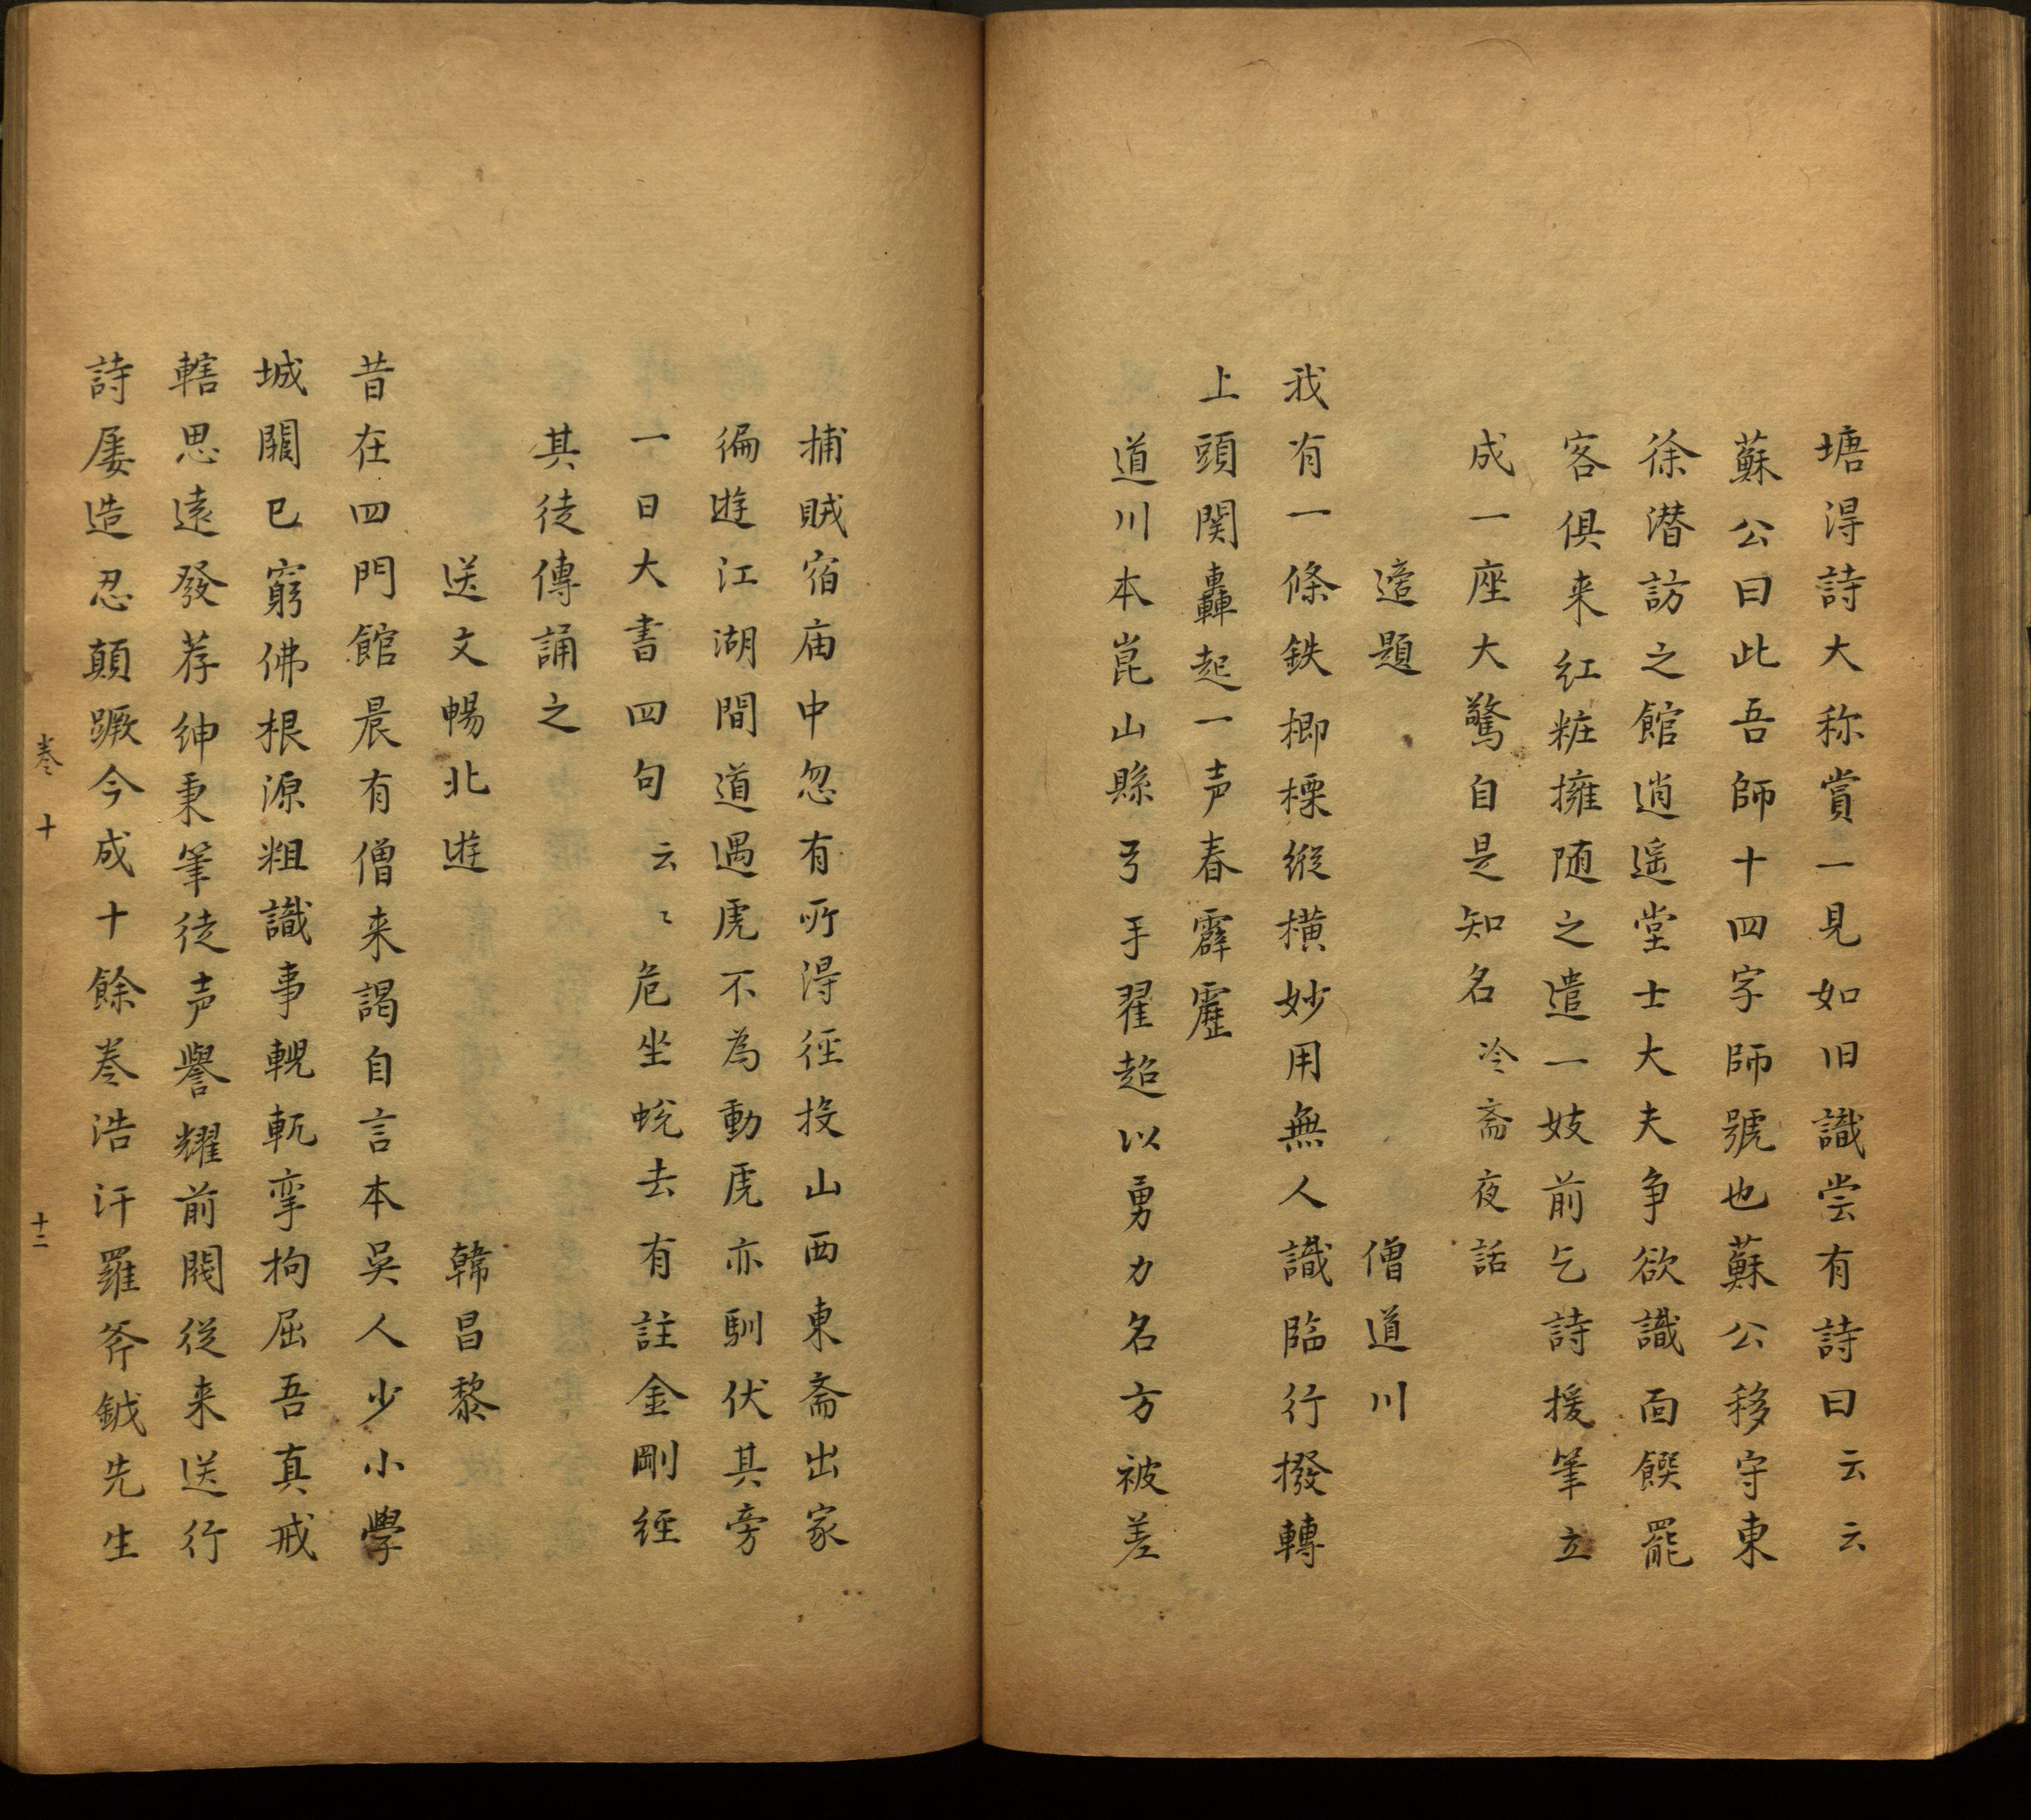 塘淂詩大称賞一見如旧識尝有詩曰云云
蘇公曰此吾師十四字師號也蘇公移守東
徐潜訪之館逍遥堂士大夫争欲識面饌罷
客俱来红粧擁随之遣一妓前乞詩援筆立
成一座大驚自是知名 冷斋夜話
題 僧道川
我有一條鉄楖㮚縱横妙用無人識臨行撥轉
上頭関轟起一声春霹靂
道川本崑山縣弓手翟超以勇力名方被差
捕賊宿庙中忽有所淂徑投山西東斋出家
徧遊江湖間道遇虎不為動虎亦馴伏其旁
一日大書四句云〻危坐蛻去有註金剛經
其徒傳誦之
送文暢北遊 韓昌黎
昔在四門館晨有僧来謁自言本吳人少小學
城闕已窮佛根源粗識事輗軏挛拘屈吾真戒
轄思遠發荐紳秉筆徒声譽耀前閥從来送行
詩屡造忍顛蹶今成十餘卷浩汗羅斧鉞先生
卷十
十二